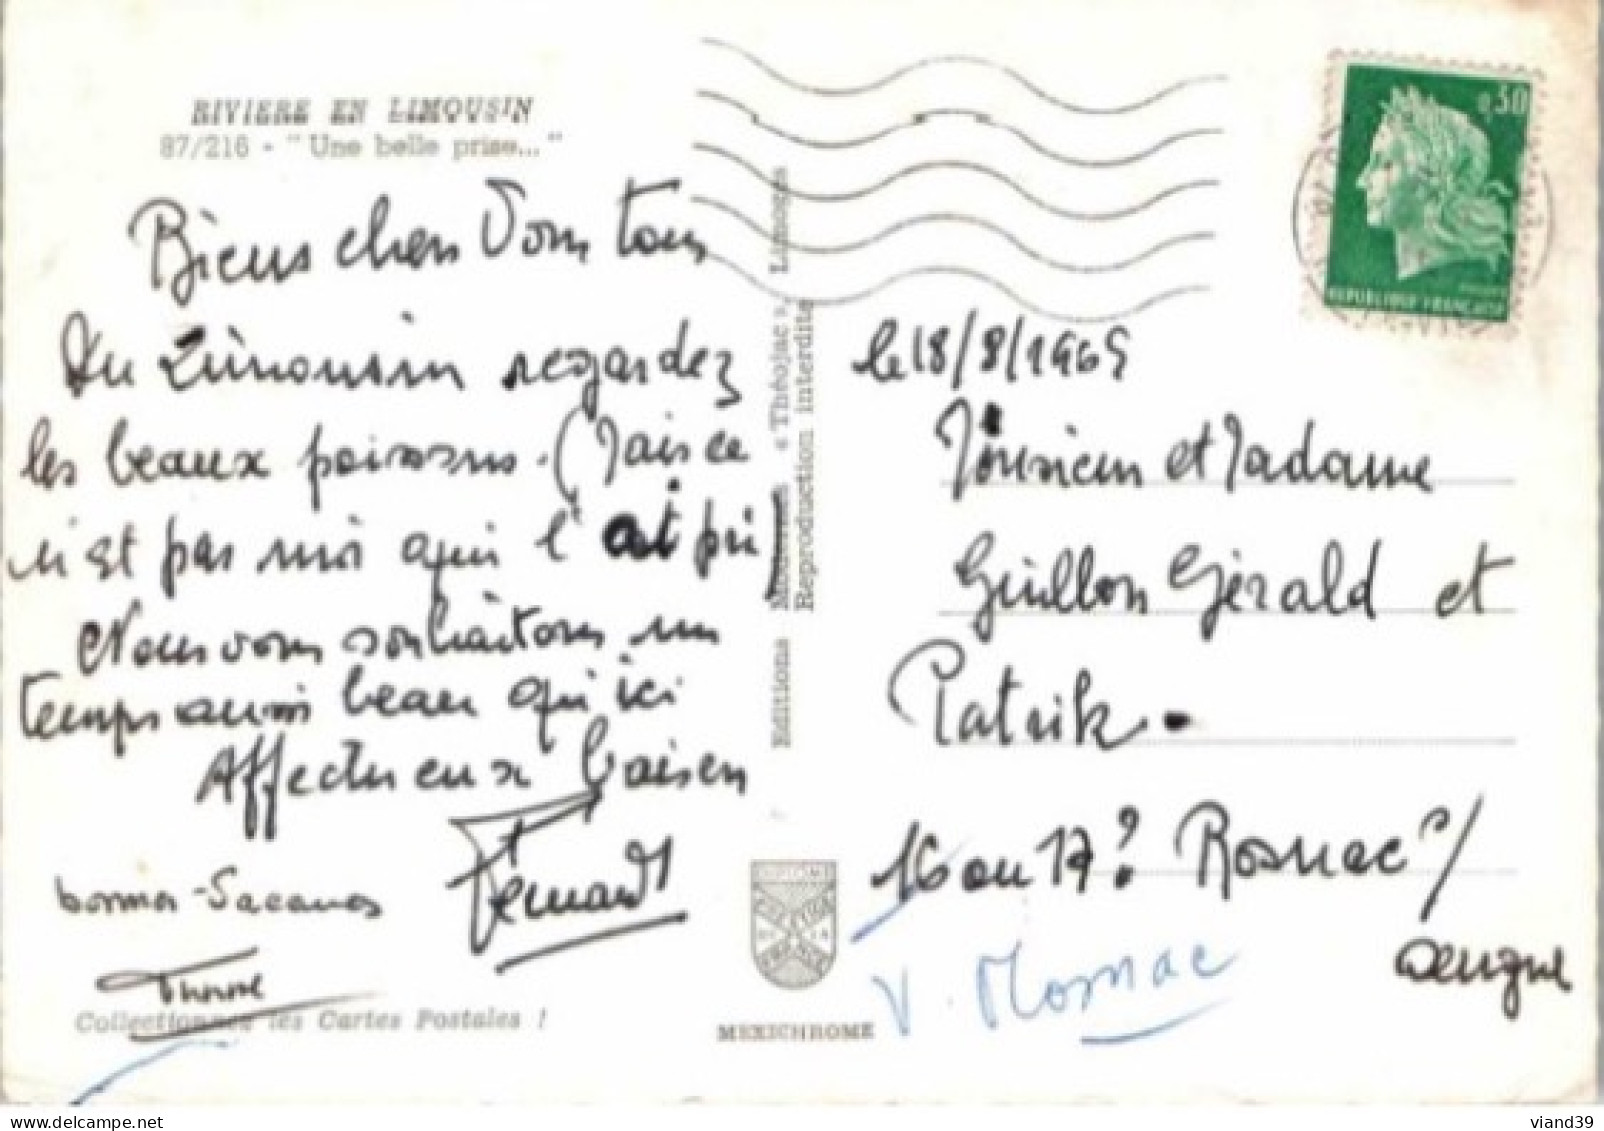 RIVIERE EN LIMOUSIN
87/216 - "Une belle prise..."
Biens chers Vous tous
Du Limousin regardez
les beaux poissons. (Mais ce
n'est pas moi qui l'at pri
Nous vous souhaitons un
temps aussi beau qu'ici
Affectueux baisers
Fernand
Collectionnez les Cartes Postales !
Editions « Théojac », Limoges
Reproduction interdite
MEXICHROME
0,30
REPUBLIQUE FRANÇAISE
le 18/8/1969
Monsieur et Madame
Guillon Gérald et
Patrik.
16 ou 17? Rosnac s/
V. Mosnac
viand39